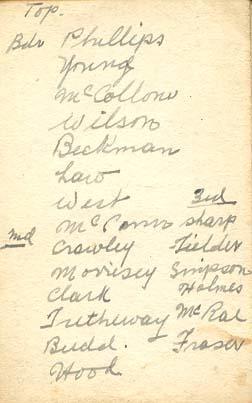 Top.
Bdr Phillips
Young
McCollone
Wilson
Beckman
Law
West 3rd
McCann Sharp
md Crawley Fielder
Morrisey Simpson
Clark Holmes
Tretheway McRae
Budd. Fraser
Wood